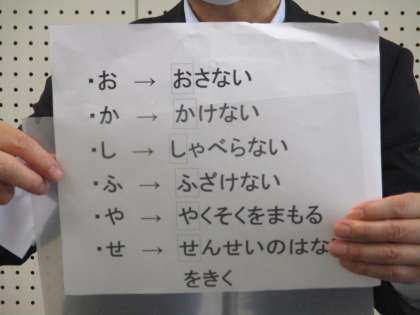 ・お → おさない
・か → かけない
・し → しゃべらない
・ふ → ふざけない
・や → やくそくをまもる
・せ → せんせいのはな
をきく